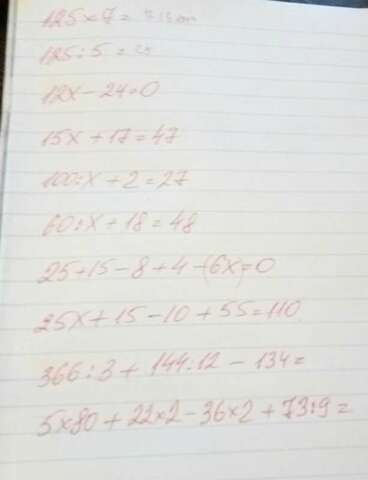 125x7=
125:5=25
12x-24=0
15x+17=47
100:x+2=27
60:x+18=48
25+15-8+4-(6x)=0
25x+15-10+55=110
366:3+144:12-134=
5x80+22x2-36x2+73:9=